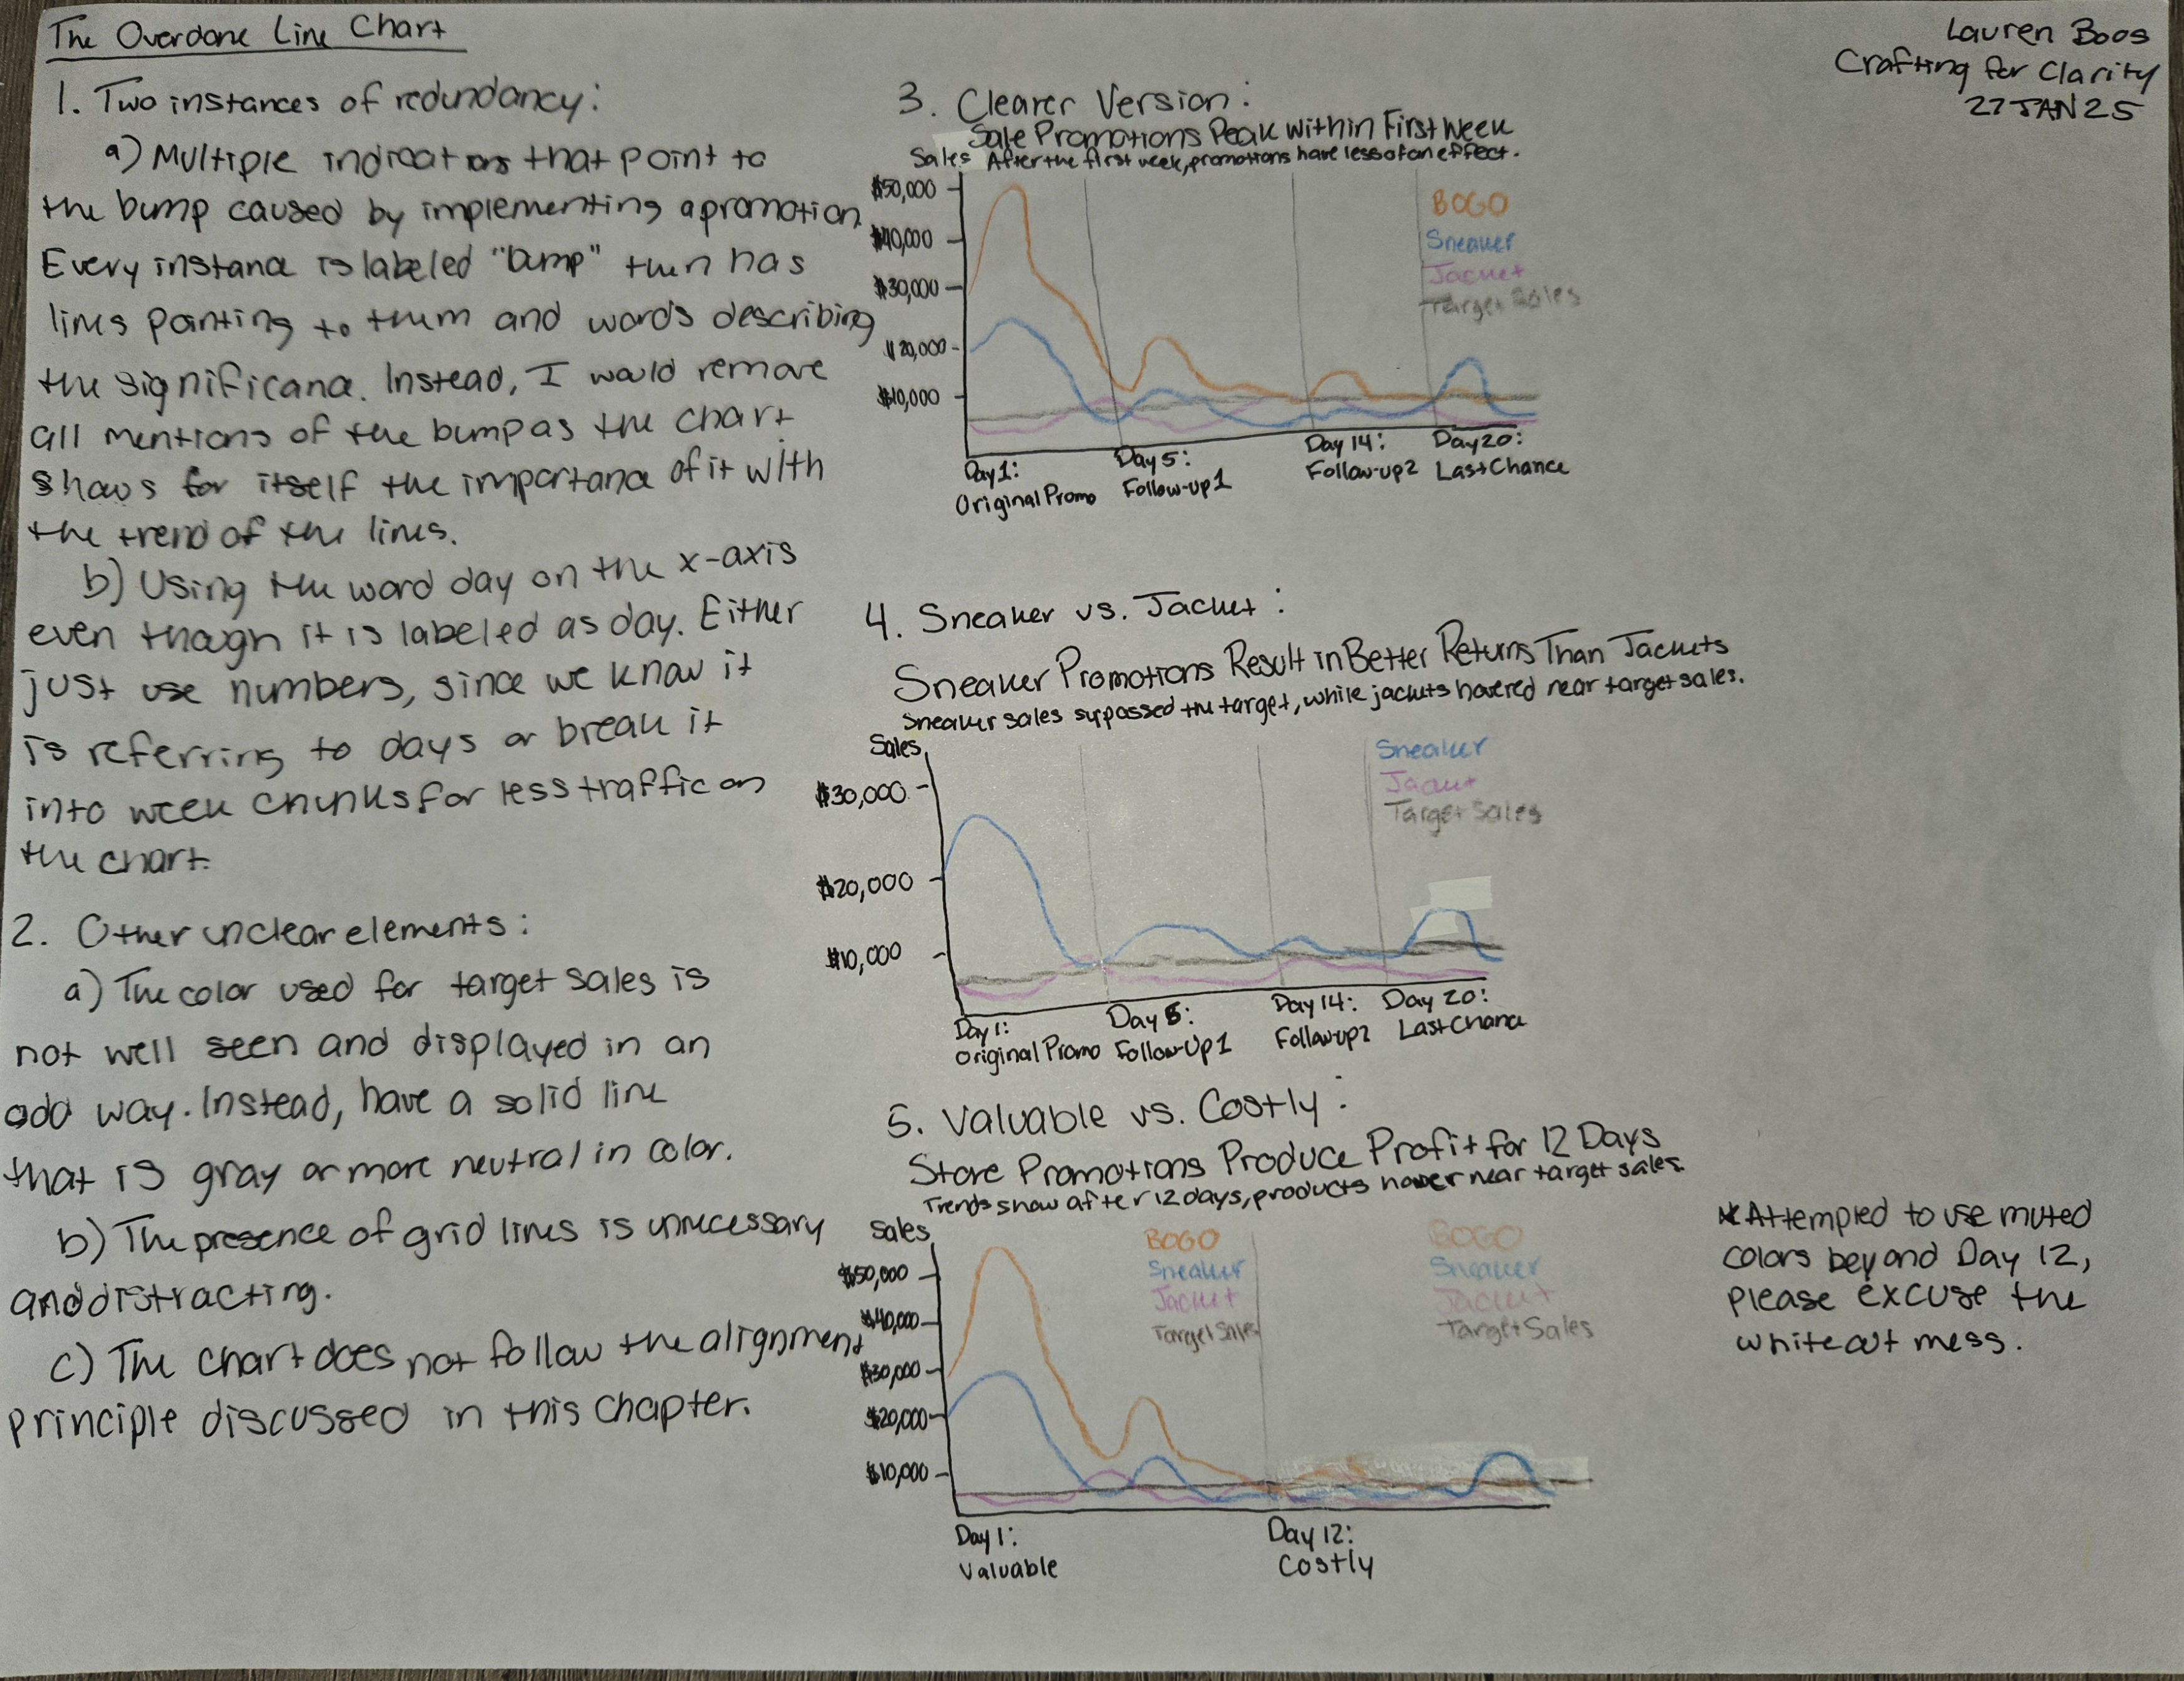 The Overdone Line Chart
Lauren Boos
Crafting for Clarity
27 JAN 25
1. Two instances of redundancy:
a) Multiple indicators that point to
the bump caused by implementing a promotion.
Every instance is labeled "bump" then has
lines pointing to them and words describing
the significance. Instead, I would remove
all mentions of the bump as the chart
shows for itself the importance of it with
the trend of the lines.
b) Using the word day on the x-axis
even though it is labeled as day. Either
just use numbers, since we know it
is referring to days or break it
into week chunks for less traffic on
the chart.
2. Other unclear elements:
a) The color used for target sales is
not well seen and displayed in an
odd way. Instead, have a solid line
that is gray or more neutral in color.
b) The presence of grid lines is unnecessary
and distracting.
c) The chart does not follow the alignment
principle discussed in this chapter.
3. Clearer Version:
Sale Promotions Peak Within First Week
After the first week, promotions have less of an effect.
Sales
$50,000
$40,000
$30,000
$20,000
$10,000
BOGO
Sneaker
Jacket
Target Sales
Day 1:
Original Promo
Day 5:
Follow-up 1
Day 14:
Follow-up 2
Day 20:
Last Chance
4. Sneaker vs. Jacket:
Sneaker Promotions Result in Better Returns Than Jackets
Sneaker sales surpassed the target, while jackets hovered near target sales.
Sales
$30,000
$20,000
$10,000
Sneaker
Jacket
Target Sales
Day 1:
Original Promo
Day 5:
Follow-Up 1
Day 14:
Follow-up 2
Day 20:
Last Chance
5. Valuable vs. Costly:
Store Promotions Produce Profit for 12 Days
Trends show after 12 days, products hover near target sales.
Sales
$50,000
$40,000
$30,000
$20,000
$10,000
BOGO
Sneaker
Jacket
Target Sales
BOGO
Sneaker
Jacket
Target Sales
Day 1:
Valuable
Day 12:
Costly
*Attempted to use muted
colors beyond Day 12,
please excuse the
whiteout mess.